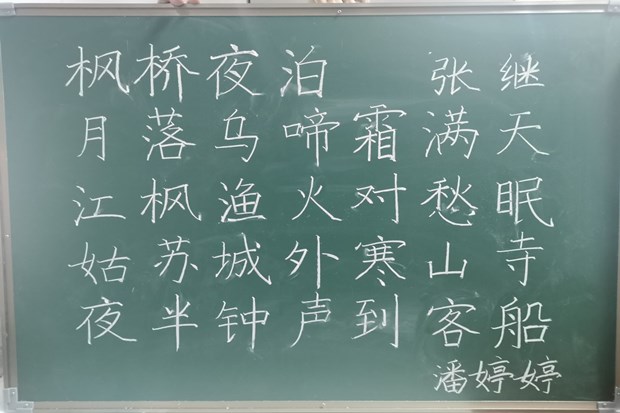 枫桥夜泊 张继
月落乌啼霜满天
江枫渔火对愁眠
姑苏城外寒山寺
夜半钟声到客船
潘婷婷